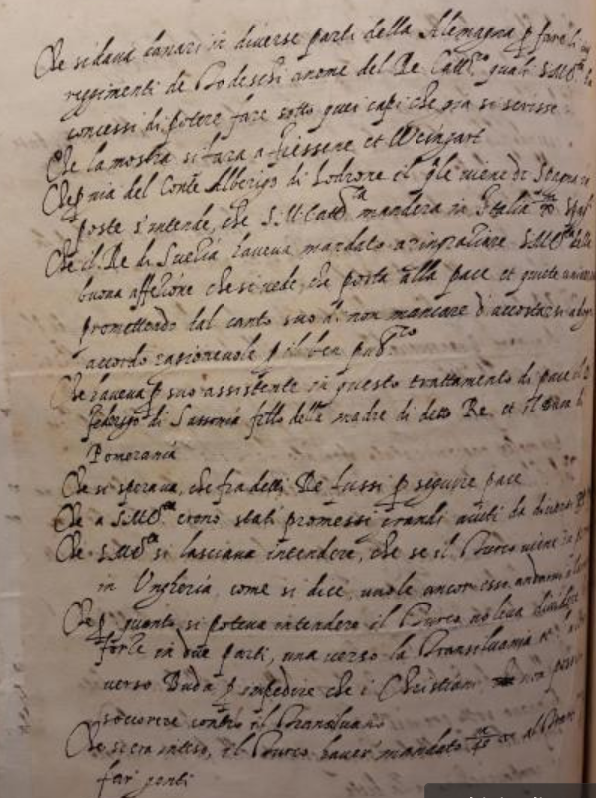 Che si dava danari in diverse parti della Alemagna p fare li
reggimenti de Todeschi a nome del Re Cattco quali S.Mta
concessi di potere fare sotto quei capi che gia si scrisse
Che la mostra si fara a Fiessene et Weingart
Che p via del Conte Alberigo di Lodrone il qle viene di Spagna in
poste s'intende, che S.M. Cattca mandera in Italia
Che il Re di Svetia haveva mandato a ringratiare S.Mta della
buona affetione che si vede, che porta alla pace et quiete
promettendo dal canto suo di non mancare d'accostarsi a
accordo ragionevole p il ben pubco
Che haveva p suo assistente in questo trattamento di pace il
federigo di Sassonia fetto della madre di detto Re, et il Duca di
Pomerania
Che si sperava, che fra detti Re fussi p seguire pace
Che a S.Mta erono stati promessi grandi aiuti da diversi
Che S.Mta si lasciava intendere, che se il Turco viene in
in Ungheria, come si dice, vuole ancor esso andarvi
Che p quanto si poteva intendere il Turco voleva dividere
forze in due parti, una verso la Transilvania et
verso Buda p impedire che i Christiani non
soccorere contro il Transilvano
Che si era inteso, il Turco haver mandato al
far genti